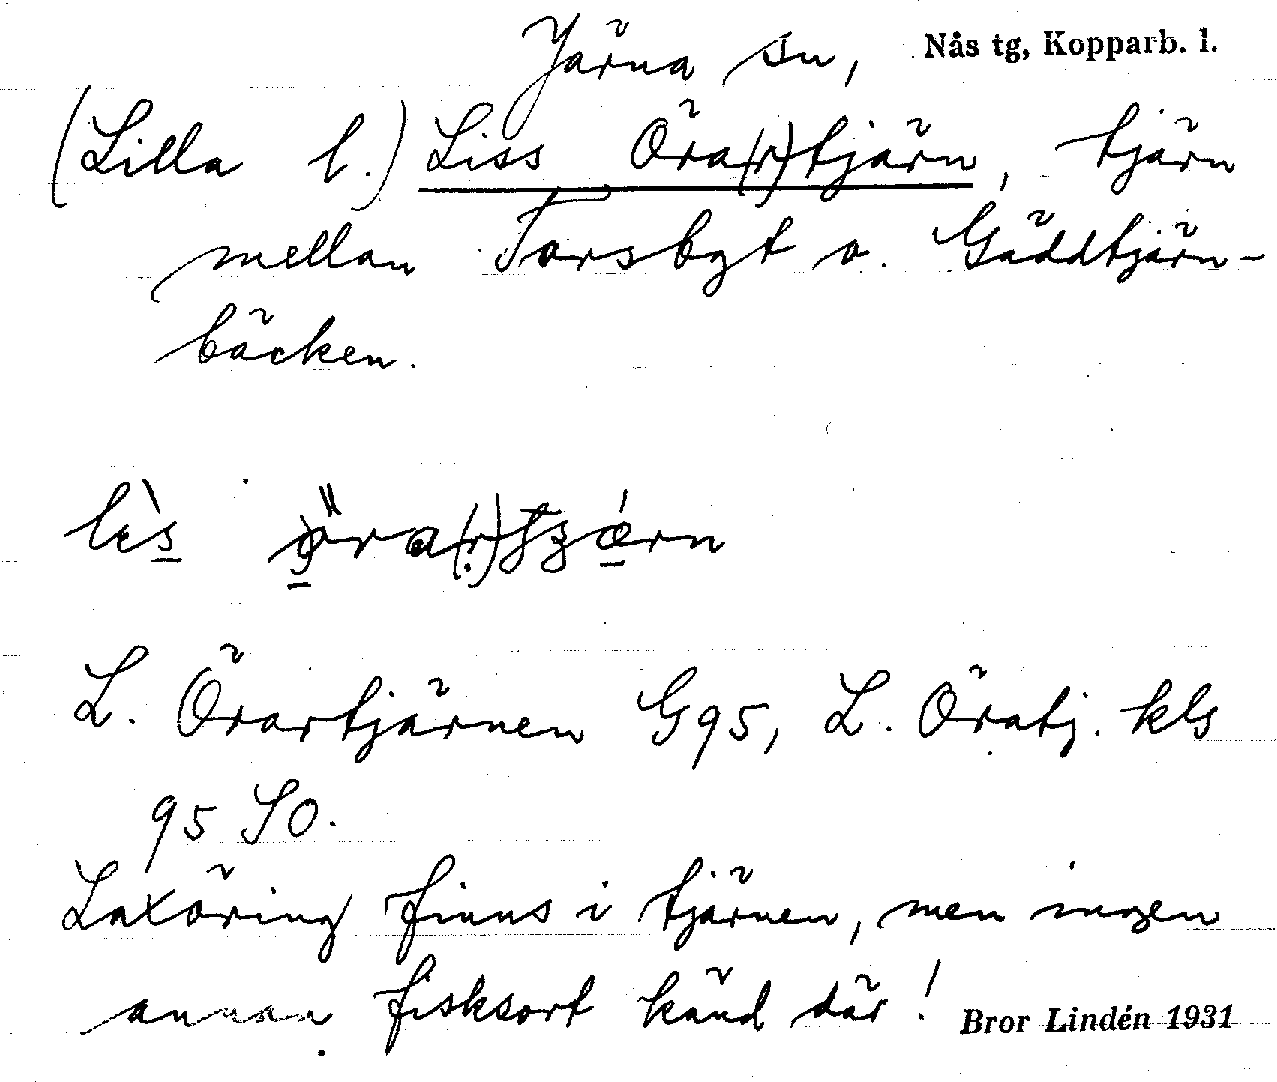 Järna sn, Nås tg, Kopparb. l.
(Lilla l.) Liss Öra(r)tjärn, tjärn
mellan Forsbyt o. Gäddtjärn-
bäcken.
L. Örartjärnen G95, L. Öratj. kls
95 SO.
Laxöring finns i tjärnen, men ingen
annan fisksort känd där! Bror Lindén 1931